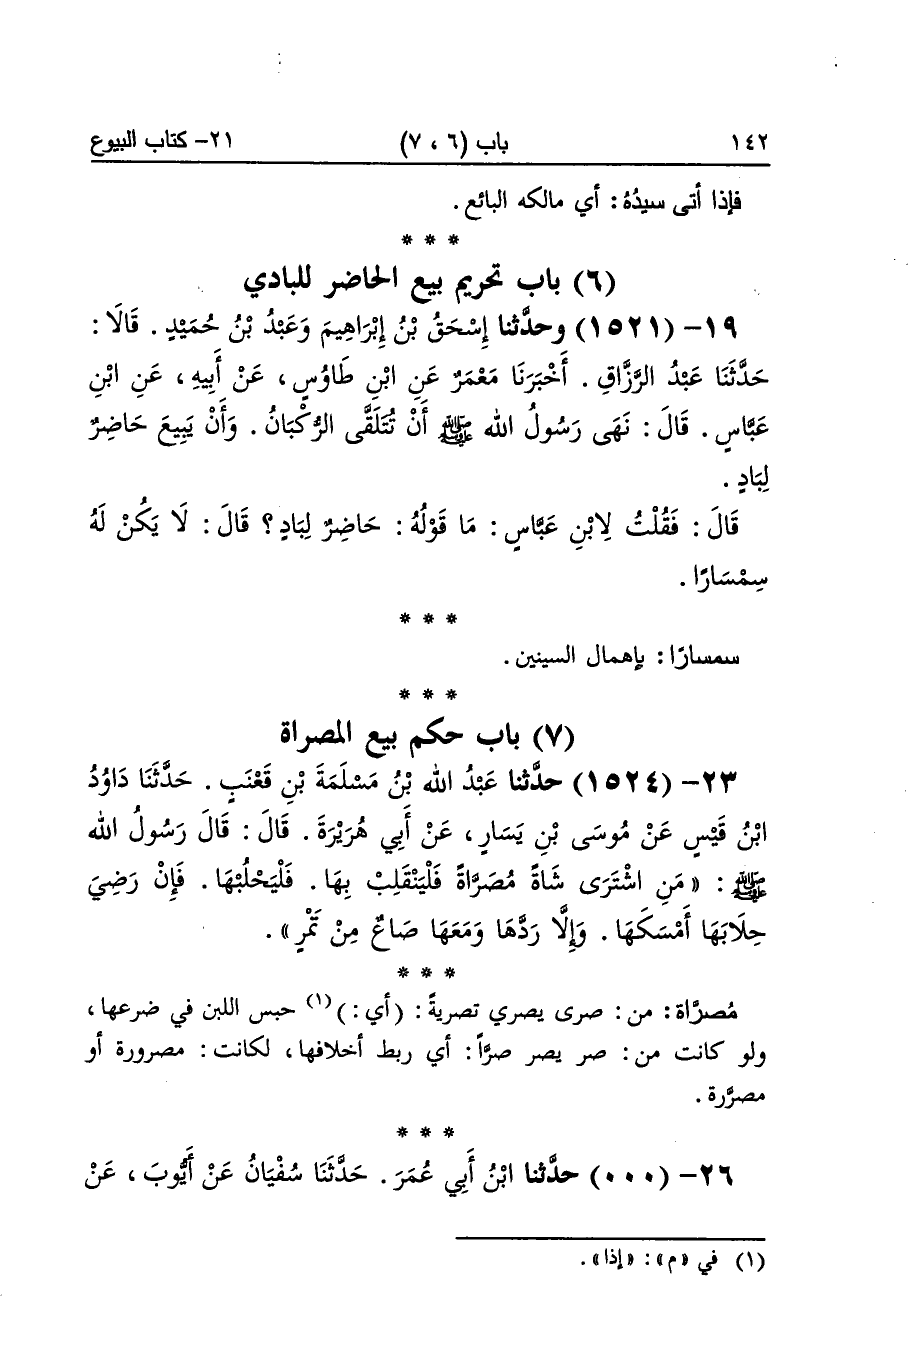 ١٤٢ باب (٦ ، ٧) ٢١- كتاب البيوع
فإذا أتى سيدُهُ : أي مالكه البائع .
* * *
(٦) باب تحريم بيع الحاضر للبادي
١٩- (١٥٢١) وحدَّثنا إِسْحَقُ بْنُ إِبْرَاهِيمَ وَعَبْدُ بْنُ حُمَيْدٍ . قَالَا :
حَدَّثَنَا عَبْدُ الرَّزَّاقِ . أَخْبَرَنَا مَعْمَرٌ عَنِ ابْنِ طَاوُسٍ ، عَنْ أَبِيهِ ، عَنِ ابْنِ
عَبَّاسٍ . قَالَ : نَهَى رَسُولُ الله ﷺ أَنْ تُتَلَقَّى الرُّكْبَانُ . وَأَنْ يَبِيعَ حَاضِرٌ
لِبَادٍ .
قَالَ : فَقُلْتُ لِابْنِ عَبَّاسٍ : مَا قَوْلُهُ : حَاضِرٌ لِبَادٍ ؟ قَالَ : لَا يَكُنْ لَهُ
سِمْسَارًا .
* * *
سمسارًا : بإهمال السينين .
* * *
(٧) باب حكم بيع المصراة
٢٣- (١٥٢٤) حدَّثنا عَبْدُ الله بْنُ مَسْلَمَةَ بْنِ قَعْنَبٍ . حَدَّثَنَا دَاوُدُ
ابْنُ قَيْسٍ عَنْ مُوسَى بْنِ يَسَارٍ ، عَنْ أَبِي هُرَيْرَةَ . قَالَ : قَالَ رَسُولُ الله
ﷺ : « مَنِ اشْتَرَى شَاةً مُصَرَّاةً فَلْيَنْقَلِبْ بِهَا . فَلْيَحْلُبْهَا . فَإِنْ رَضِيَ
حِلَابَهَا أَمْسَكَهَا . وَإِلَّا رَدَّهَا وَمَعَهَا صَاعٌ مِنْ تَمْرٍ » .
* * *
مُصرَّاة : من : صرى يصري تصريةً : (أي :)(١) حبس اللبن في ضرعها ،
ولو كانت من : صر يصر صرًّا : أي ربط أخلافها ، لكانت : مصرورة أو
مصرَّرة .
* * *
٢٦- (٠٠٠) حدَّثنا ابْنُ أَبِي عُمَرَ . حَدَّثَنَا سُفْيَانُ عَنْ أَيُّوبَ ، عَنْ
(١) في «م» : «إذا» .